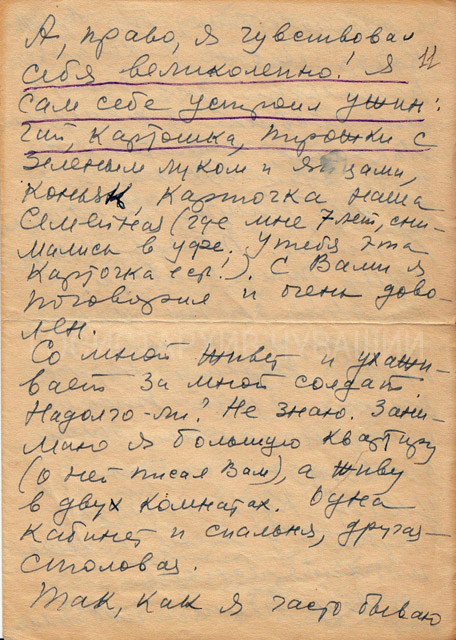 А, право, я чувствовал
себя великолепно! Я 11
сам себе устроил ужин:
чай, картошка, пирожки с
зеленым луком и яйцами,
коньяк, карточка наша
семейная (где мне 7 лет, сни-
мались в Уфе. У тебя эта
карточка есть!). С Вами я
поговорил и очень дово-
лен.
Со мной живет и ухажи-
вает за мной солдат.
Надолго-ли? Не знаю. Зани-
маю я большую квартиру
(о ней писал Вам), а живу
в двух комнатах. Одна
кабинет и спальня, другая-
столовая.
Так, как я часто бываю